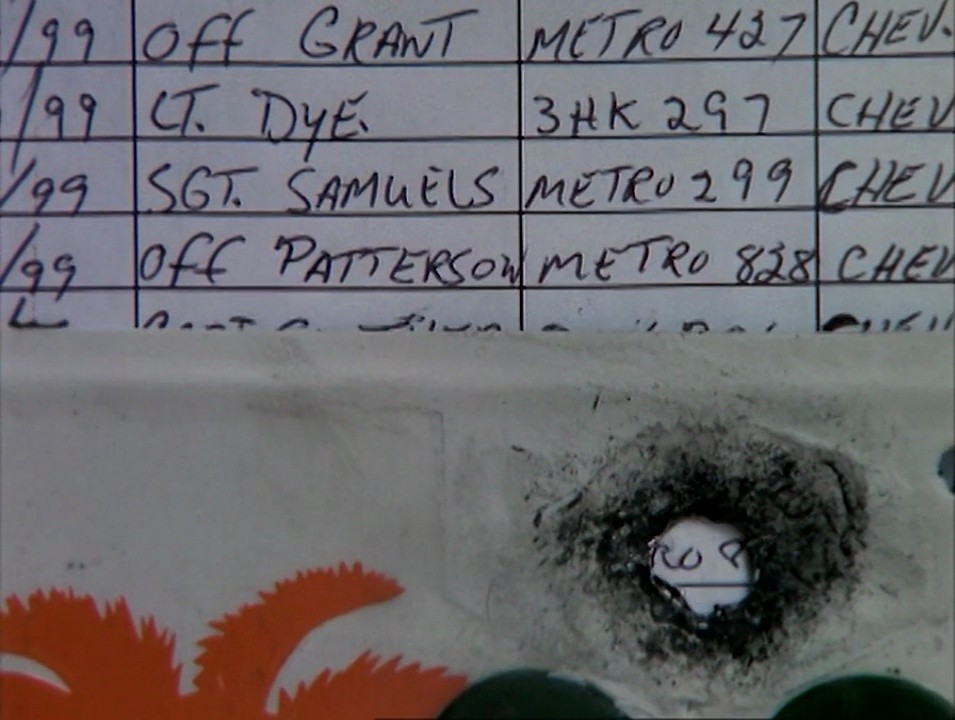 /99 Off GRANT METRO 427 CHEV.
/99 LT. DYE. 3HK 297 CHEV
/99 SGT. SAMUELS METRO 299 CHEV
/99 Off PATTERSON METRO 828 CHEV
RO